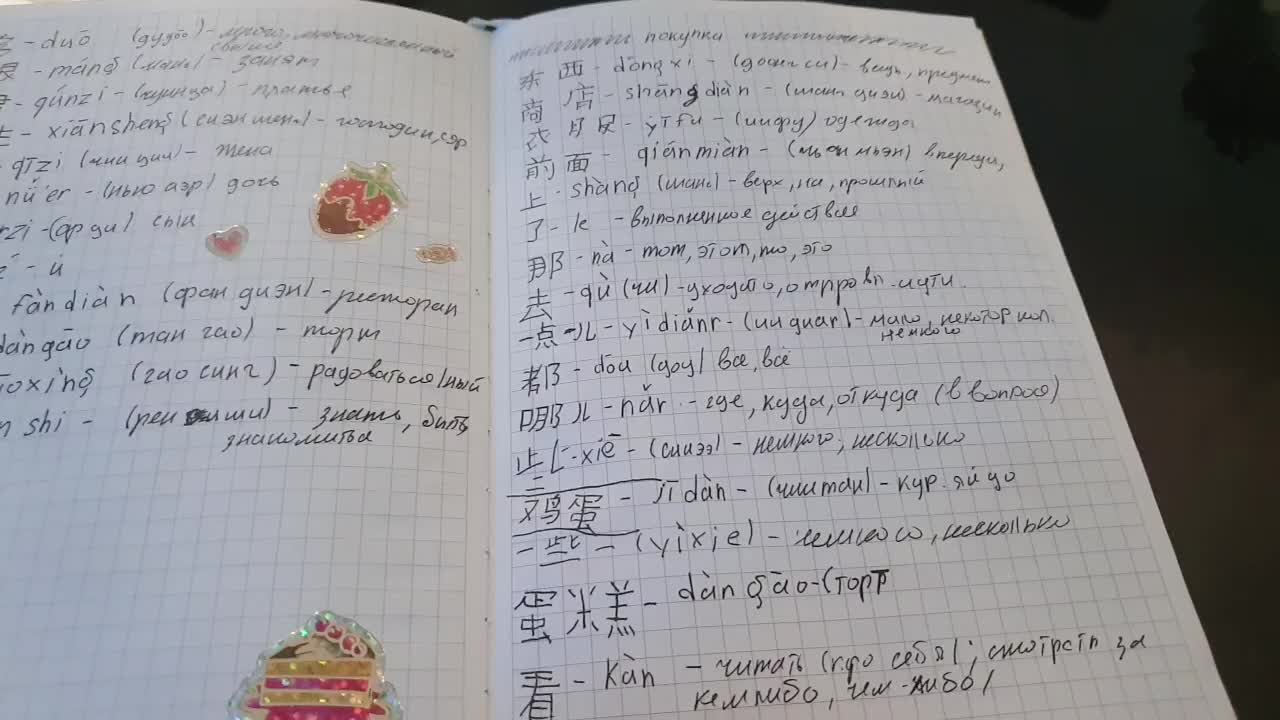 duō (дудо) - много, многочисленный
máng (ман) - занят
qúnzi - (кунцзы) - платье
xiānsheng (сиэн шен) - господин, сэр
qīzi (чии цзи) - жена
nǚ'er - (нью аэр) дочь
(ар ди) сын
- и
fàn diàn (фан диэн) - ресторан
dàngāo (тан гао) - торт
(гао синг) - радоваться/ный
shi - (рен ши) - знать, быть
знакомиться
покупка
东西 - dōngxi - (доанг си) - вещь, предмет
商店 - shāng diàn - (шан диэн) - магазин
衣服 - yīfu - (иифу) одежда
前面 - qiánmiàn - (мьэн) впереди,
上 - shàng (шанг) - верх, на, прошлый
了 - le - выполненное действие
那 - nà - тот, этот, то, это
去 - qù (чи) - уходить, отправ пути.
一点儿 - yìdiǎnr - (ии диаг) - мало, некотор кол.
немного
都 - dōu (доу) все, всё
哪儿 - nǎr - где, куда, откуда (в вопросе)
些 - xiē - (сиэ) - немного, несколько
鸡蛋 - jīdàn - (чии тан) - кур. яйцо
一些 - (yìxie) - немного, несколько
蛋糕 - dàn gāo - (торт
看 - kàn - читать (про себя); смотреть за
кем либо, чем-либо/